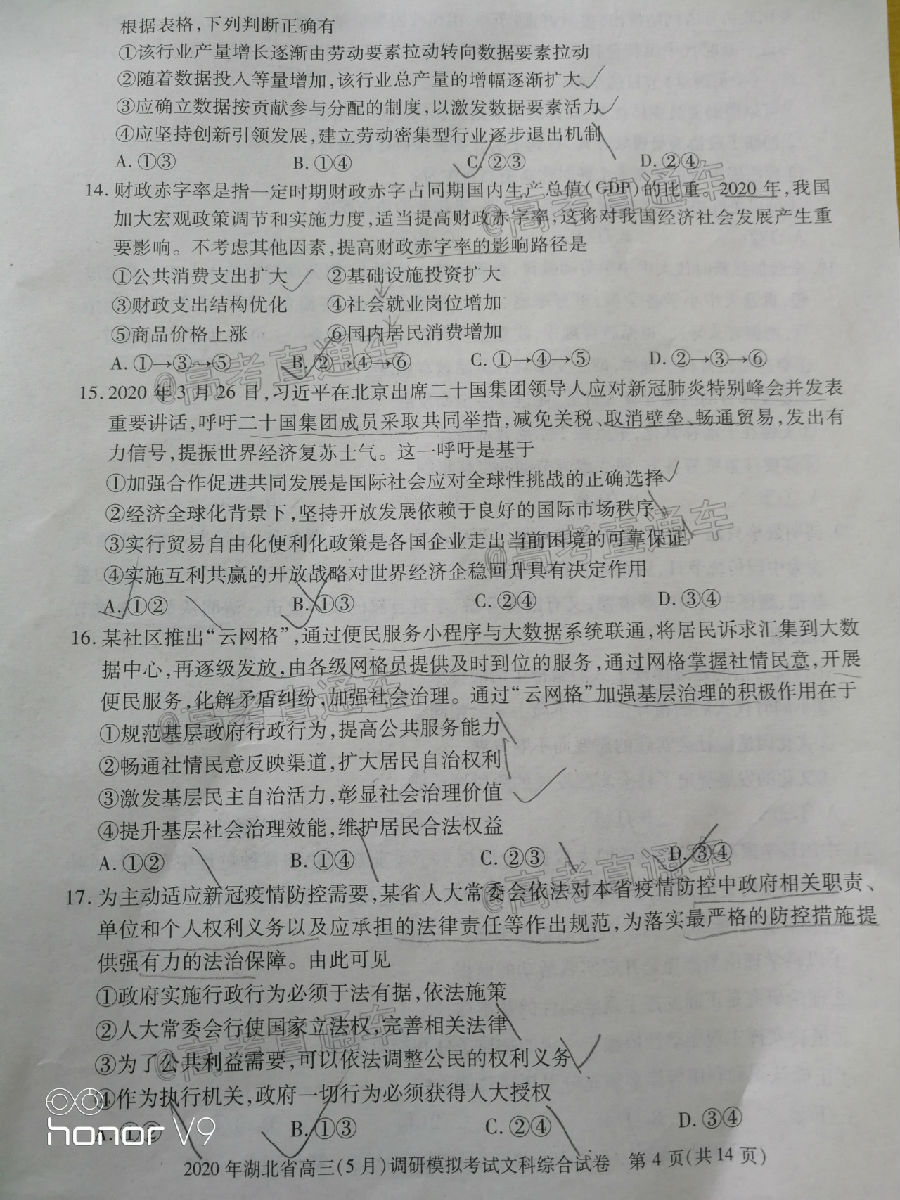 根据表格，下列判断正确有
①该行业产量增长逐渐由劳动要素拉动转向数据要素拉动
②随着数据投入等量增加，该行业总产量的增幅逐渐扩大
③应确立数据按贡献参与分配的制度，以激发数据要素活力
④应坚持创新引领发展，建立劳动密集型行业逐步退出机制
A.①③ B.①④ C.②③ D.②④
14.财政赤字率是指一定时期财政赤字占同期国内生产总值(GDP)的比重。2020年，我国
加大宏观政策调节和实施力度，适当提高财政赤字率，这将对我国经济社会发展产生重
要影响。不考虑其他因素，提高财政赤字率的影响路径是
①公共消费支出扩大 ②基础设施投资扩大
③财政支出结构优化 ④社会就业岗位增加
⑤商品价格上涨 ⑥国内居民消费增加
A.①→③→⑤ B.②→④→⑥ C.①→④→⑤ D.②→③→⑥
15.2020年3月26日，习近平在北京出席二十国集团领导人应对新冠肺炎特别峰会并发表
重要讲话，呼吁二十国集团成员采取共同举措，减免关税、取消壁垒、畅通贸易，发出有
力信号，提振世界经济复苏士气。这一呼吁是基于
①加强合作促进共同发展是国际社会应对全球性挑战的正确选择
②经济全球化背景下，坚持开放发展依赖于良好的国际市场秩序
③实行贸易自由化便利化政策是各国企业走出当前困境的可靠保证
④实施互利共赢的开放战略对世界经济企稳回升具有决定作用
A.①② B.①③ C.②④ D.③④
16.某社区推出“云网格”，通过便民服务小程序与大数据系统联通，将居民诉求汇集到大数
据中心，再逐级发放，由各级网格员提供及时到位的服务，通过网格掌握社情民意，开展
便民服务，化解矛盾纠纷，加强社会治理。通过“云网格”加强基层治理的积极作用在于
①规范基层政府行政行为，提高公共服务能力
②畅通社情民意反映渠道，扩大居民自治权利
③激发基层民主自治活力，彰显社会治理价值
④提升基层社会治理效能，维护居民合法权益
A.①② B.①④ C.②③ D.③④
17.为主动适应新冠疫情防控需要，某省人大常委会依法对本省疫情防控中政府相关职责、
单位和个人权利义务以及应承担的法律责任等作出规范，为落实最严格的防控措施提
供强有力的法治保障。由此可见
①政府实施行政行为必须于法有据，依法施策
②人大常委会行使国家立法权，完善相关法律
③为了公共利益需要，可以依法调整公民的权利义务
④作为执行机关，政府一切行为必须获得人大授权
A.①② B.①③ C.②④ D.③④
2020年湖北省高三(5月)调研模拟考试文科综合试卷 第4页(共14页)
honor V9
@高考直通车
@高考直通车
@高考直通车
@高考直通车
@高考直通车
@高考直通车